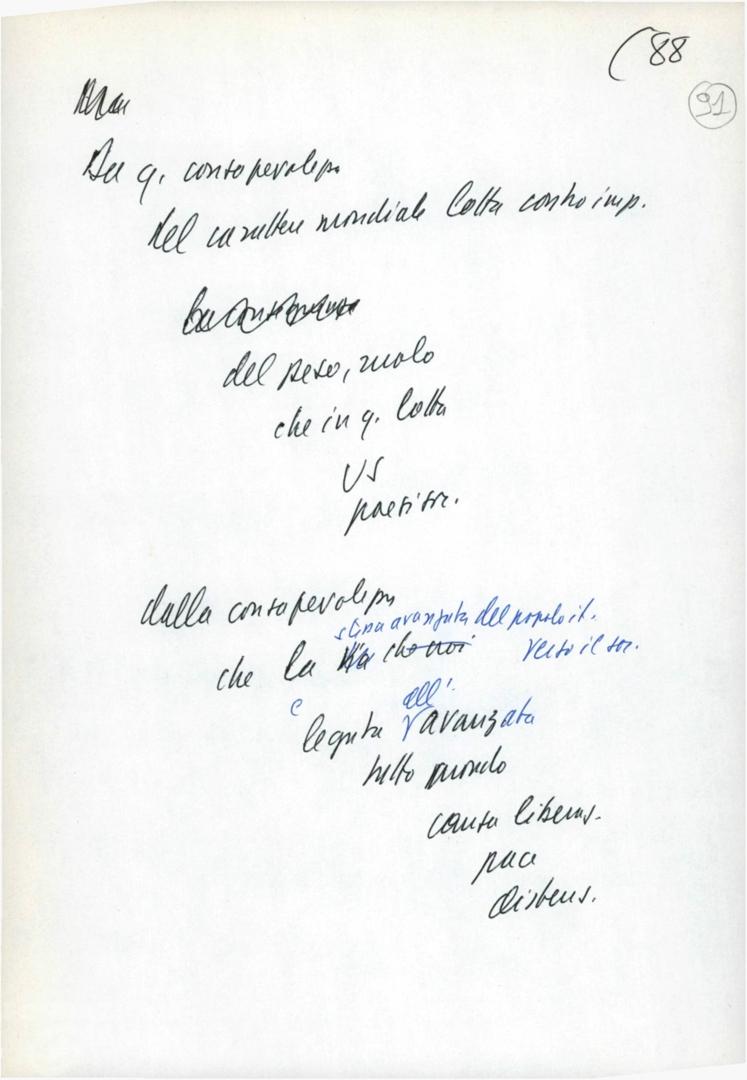 (88
91
Da q. consapevolezza
del carattere mondiale lotta contro imp.
del peso, ruolo
che in q. lotta
US
paesi soc.
dalla consapevolezza
stessa avanzata del popolo it.
che la via che noi verso il soc.
è all'
legata avanzata
tutto mondo
causa liberaz.
pace
distens.